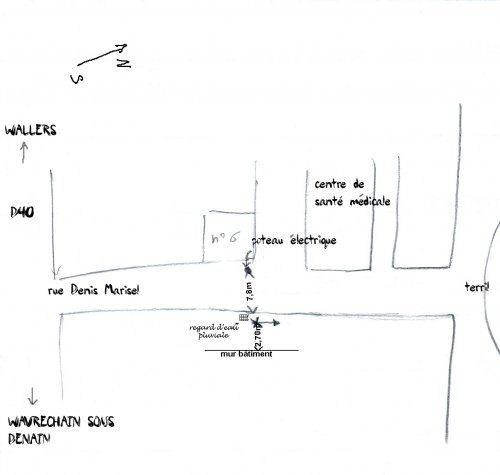 N
S
WALLERS
D40
centre de
santé médicale
n° 6
poteau électrique
rue Denis Marisel
7,8m
terril
regard d'eau
pluviale
2,70m
mur bâtiment
WAVRECHAIN SOUS
DENAIN